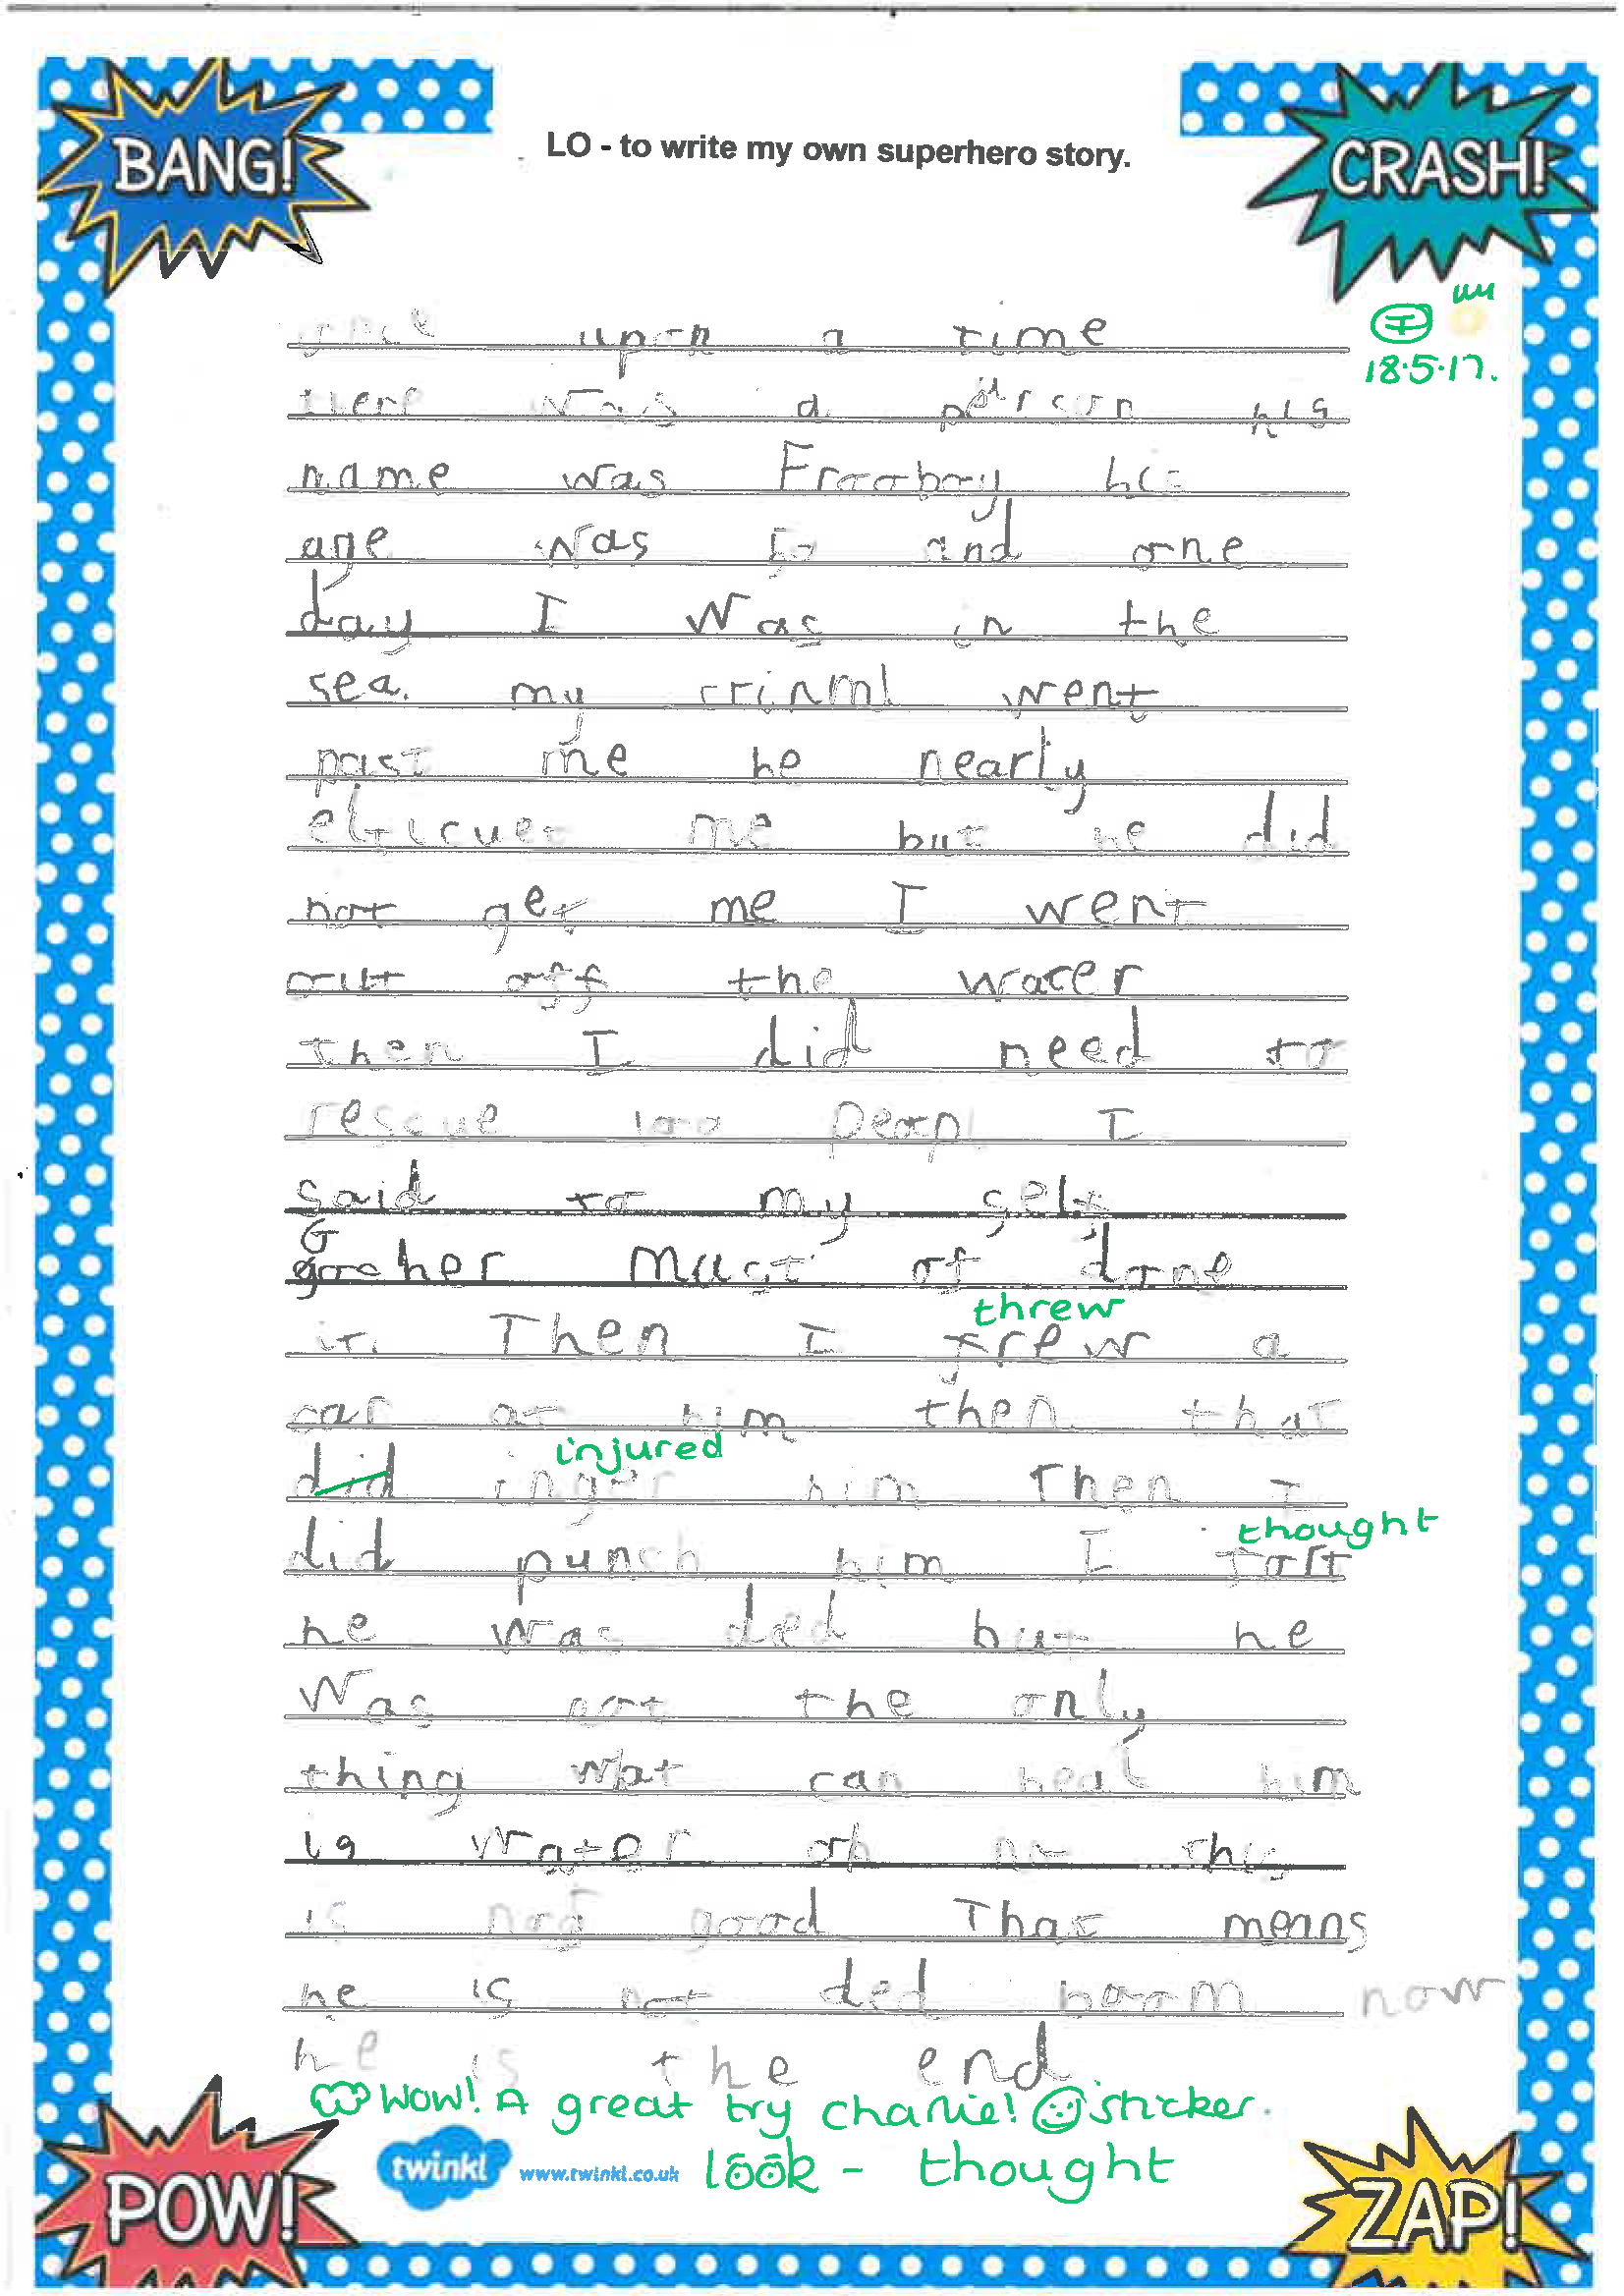 BANG!
CRASH!
LO - to write my own superhero story.
18.5.17.
once upon a time
there was a person his
name was Frooboy his
age was and one
day I was in the
sea. my crinml went
past me he nearly
me but he did
not get me I went
out off the water
then I did need to
rescue 100 peopl I
said to my self
must of done
it. Then I threw
frew a
car at him then that
injured
did inger him Then I
thought
did punch him I fort
he was ded but he
was not the only
thing wat can heal him
is water oh no this
is not good That means
he is not ded boom now
he is the end
Wow! A great try Charlie! sticker.
look - thought
twinkl www.twinkl.co.uk
POW!
ZAP!